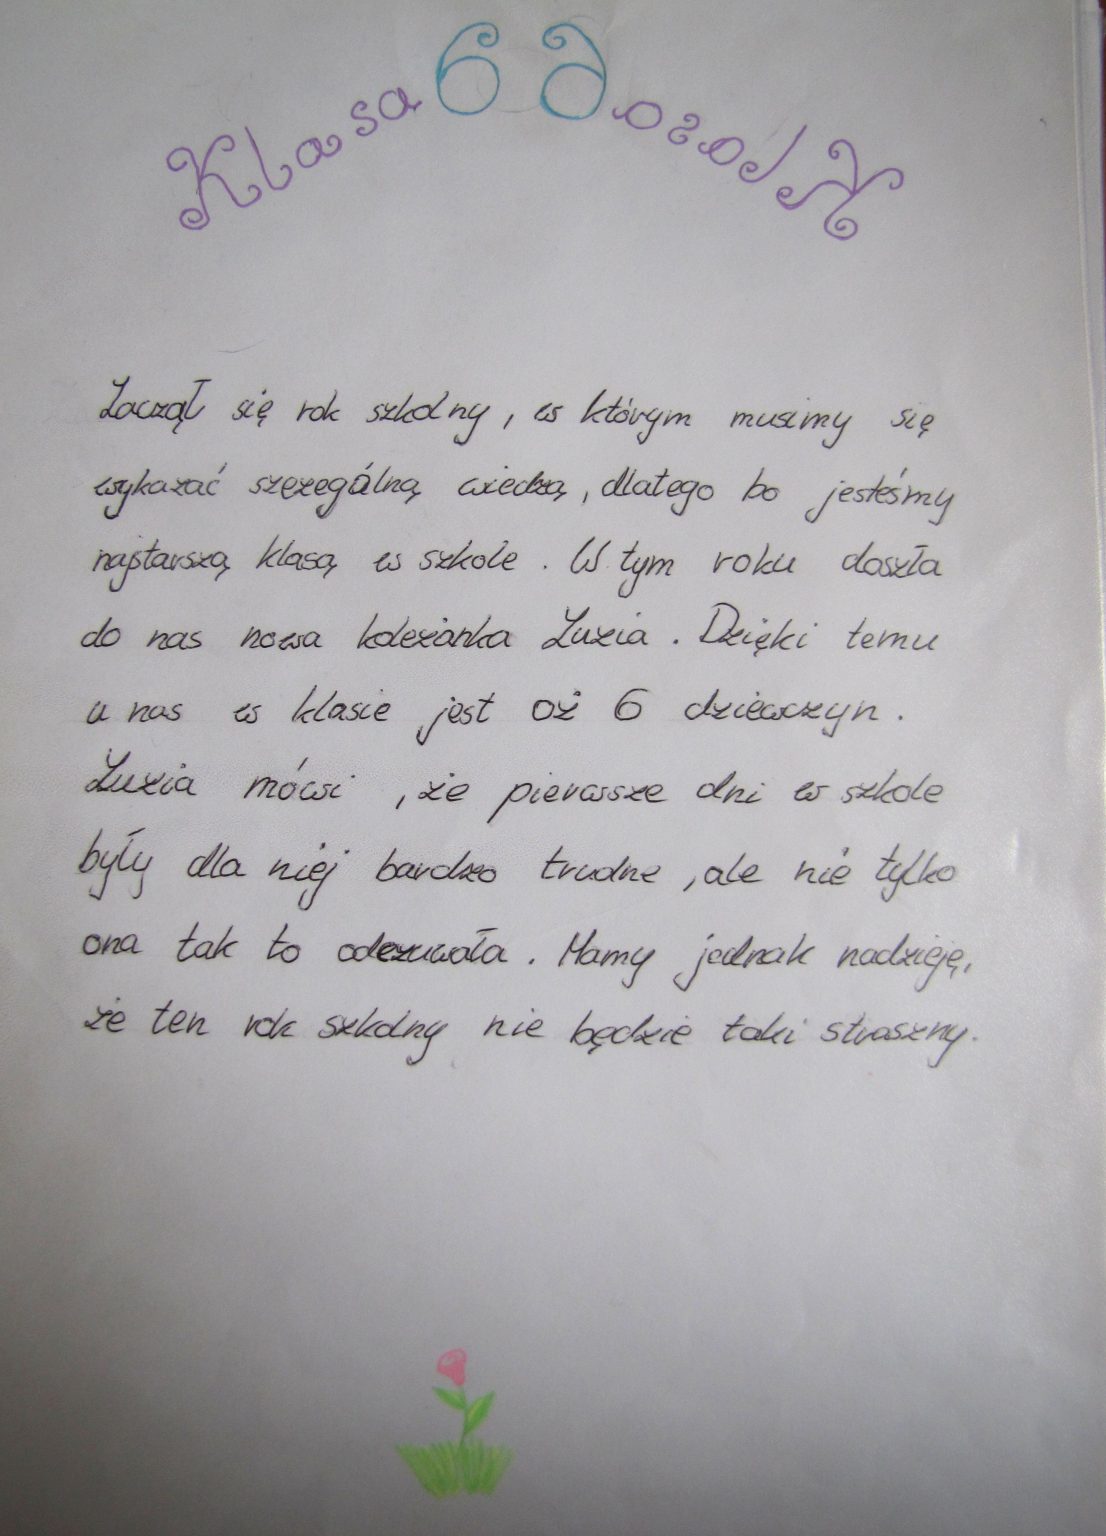 Klasa 6 6 Klasa
Zaczął się rok szkolny, w którym musimy się
wykazać szczególną wiedzą, dlatego bo jesteśmy
najstarszą klasą w szkole. W tym roku doszła
do nas nowa koleżanka Zuzia. Dzięki temu
u nas w klasie jest aż 6 dziewczyn.
Zuzia mówi, że pierwsze dni w szkole
były dla niej bardzo trudne, ale nie tylko
ona tak to odczuwała. Mamy jednak nadzieję,
że ten rok szkolny nie będzie taki straszny.